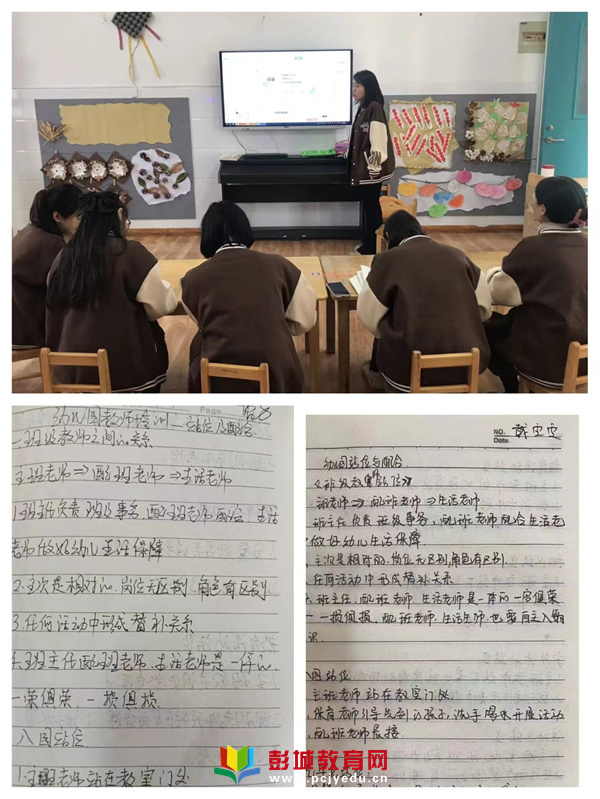 Page
幼儿园教师培训—站位及配合
一.班级教师之间的关系
主班老师⇒配班老师⇒生活老师
1.班主任负责班级事务,配班老师配合,生活
老师做好幼儿生活保障
2.主次是相对的.岗位无区别.角色有区别.
3.任何活动中形成替补关系
4.班主任配班老师.生活老师是一体的.
一荣俱荣.一损俱损.
入园站位
1.主班老师站在教室门处
NO.
Date.
幼儿园站位与配合.
班老师⇒配班老师⇒生活老师
班主任负责班级事务,配班老师配合生活老
做好幼儿生活保障
主次是相对的,岗位无区别,角色有区别.
任何活动中形成替补关系
班主任,配班老师,生活老师是一体的一荣俱荣
一损俱损.配班老师.生活老师也要有主人翁
识.
园站位
主班老师站在教室门处
保育老师引导先到的孩子,洗手喝水开展活动
配班老师晨接
彭城教育网
www.pcjyedu.cn